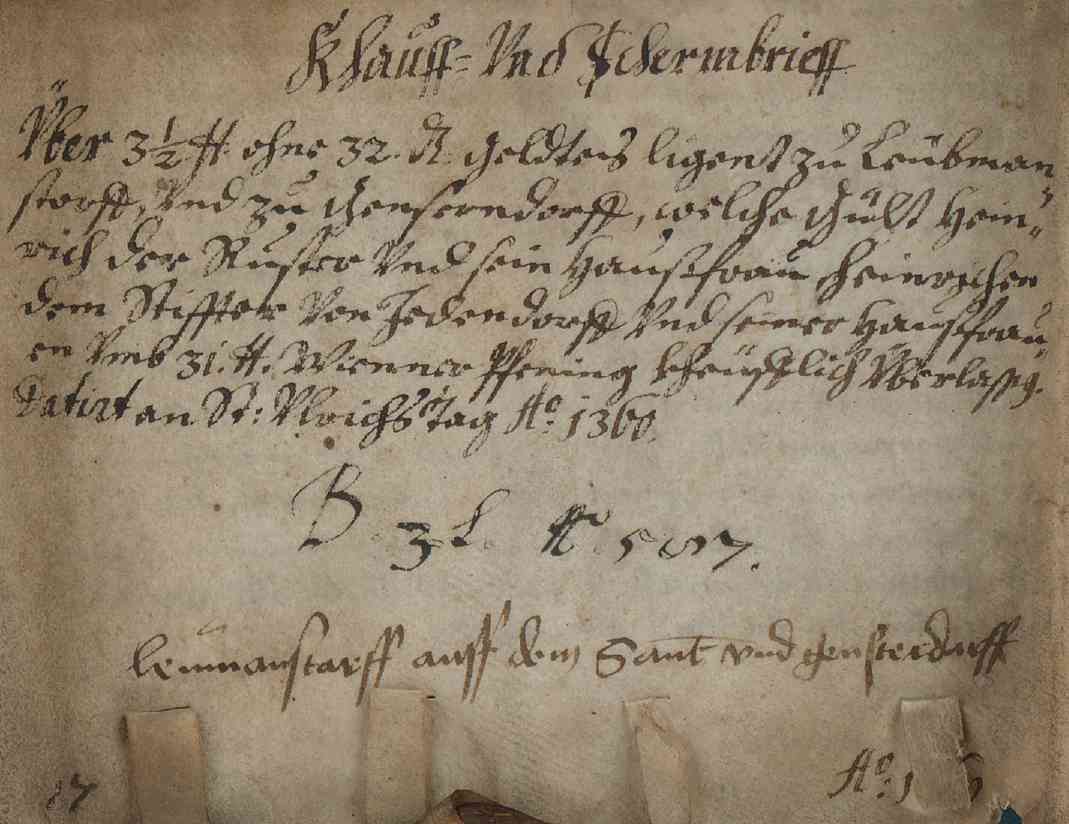 Khauff= Vnd Schermbrieff
Über 3½ ℔ ohne 32. ₰ geldtes ligent zu Leübman=
storff, Vnd zu Genserndorff, welche Gült Hein=
rich der Ruster Vnd sein Haußfrau Heinrichen
dem Stiffter Von Jedendorff Vnd seiner Haußfrau=
en Vmb 31. ℔. Wienner Pfening kheüfflich Überlassen.
Datirt an St: Vlrichs Tag Aº. 1360.
B. 3 L. 
lewmanstarff auff dem Sant vnd gensterdarff
Aº. 1